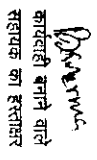 कार्यवाही बनाने वाले
सहायक का हस्ताक्षर